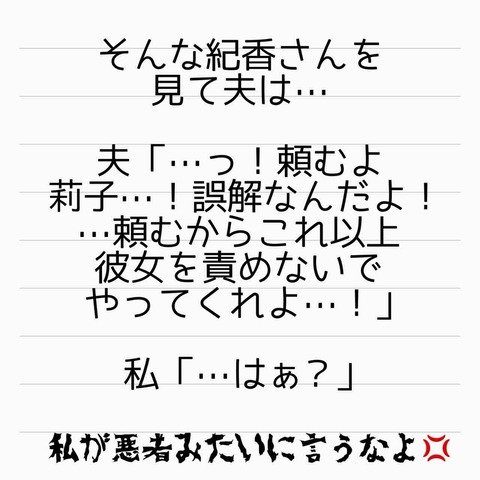 そんな紀香さんを
見て夫は…
夫「…っ！頼むよ
莉子…！誤解なんだよ！
…頼むからこれ以上
彼女を責めないで
やってくれよ…！」
私「…はぁ？」
私が悪者みたいに言うなよ💢